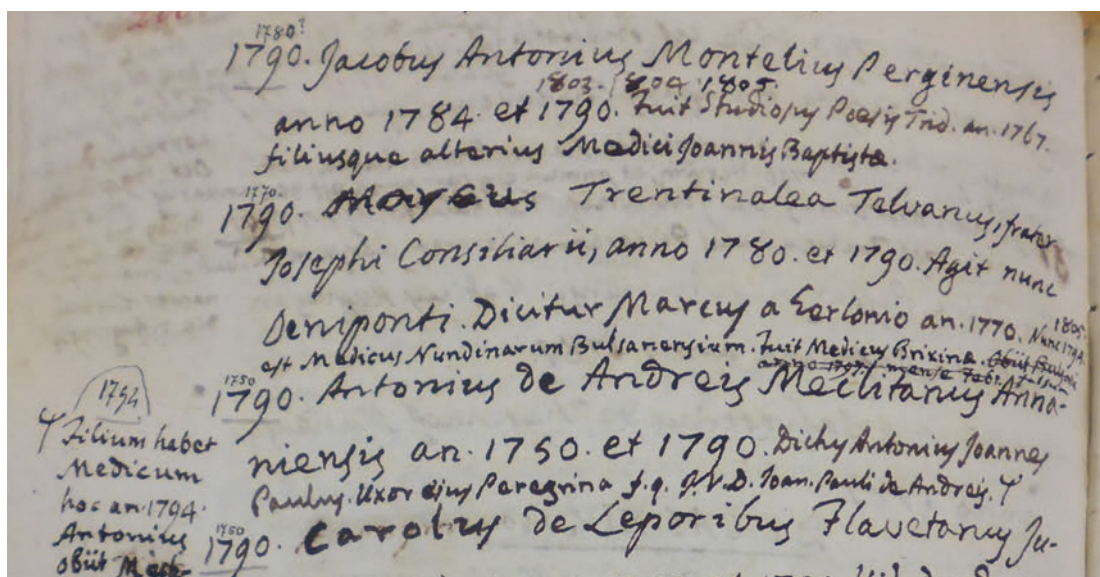 1780?
1790. Jacobus Antonius Montelius Perginensis
1803. 1804. 1805.
anno 1784 et 1790. Fuit Studiosus Poesis Trid. an. 1767.
filiusque alterius Medici Joannis Baptistæ.
1770
1790. Marcus Trentinalea Telvanus, frater
Josephi Consiliarii, anno 1780. et 1790. Agit nunc
Oeniponti. Dicitur Marcus a an. 1770. Nunc 1794. 1805
est Medicus Nundinarum Bulsanensium. Fuit Medicus Brixinæ. Obiit
anno 1797. mense Febr.
1750
1790. Antonius de Andreis Meclitanus Anna-
niensis an. 1750. et 1790. Dictus Antonius Joannes
Paulus. Uxor ejus Peregrina f. q. J. V. D. Joan. Pauli de Andreis. ϒ
1750
1790. Carolus de Leporibus Flavetanus Ju-
1794
ϒ Filium habet
Medicum
hoc an. 1794.
Antonius
obiit